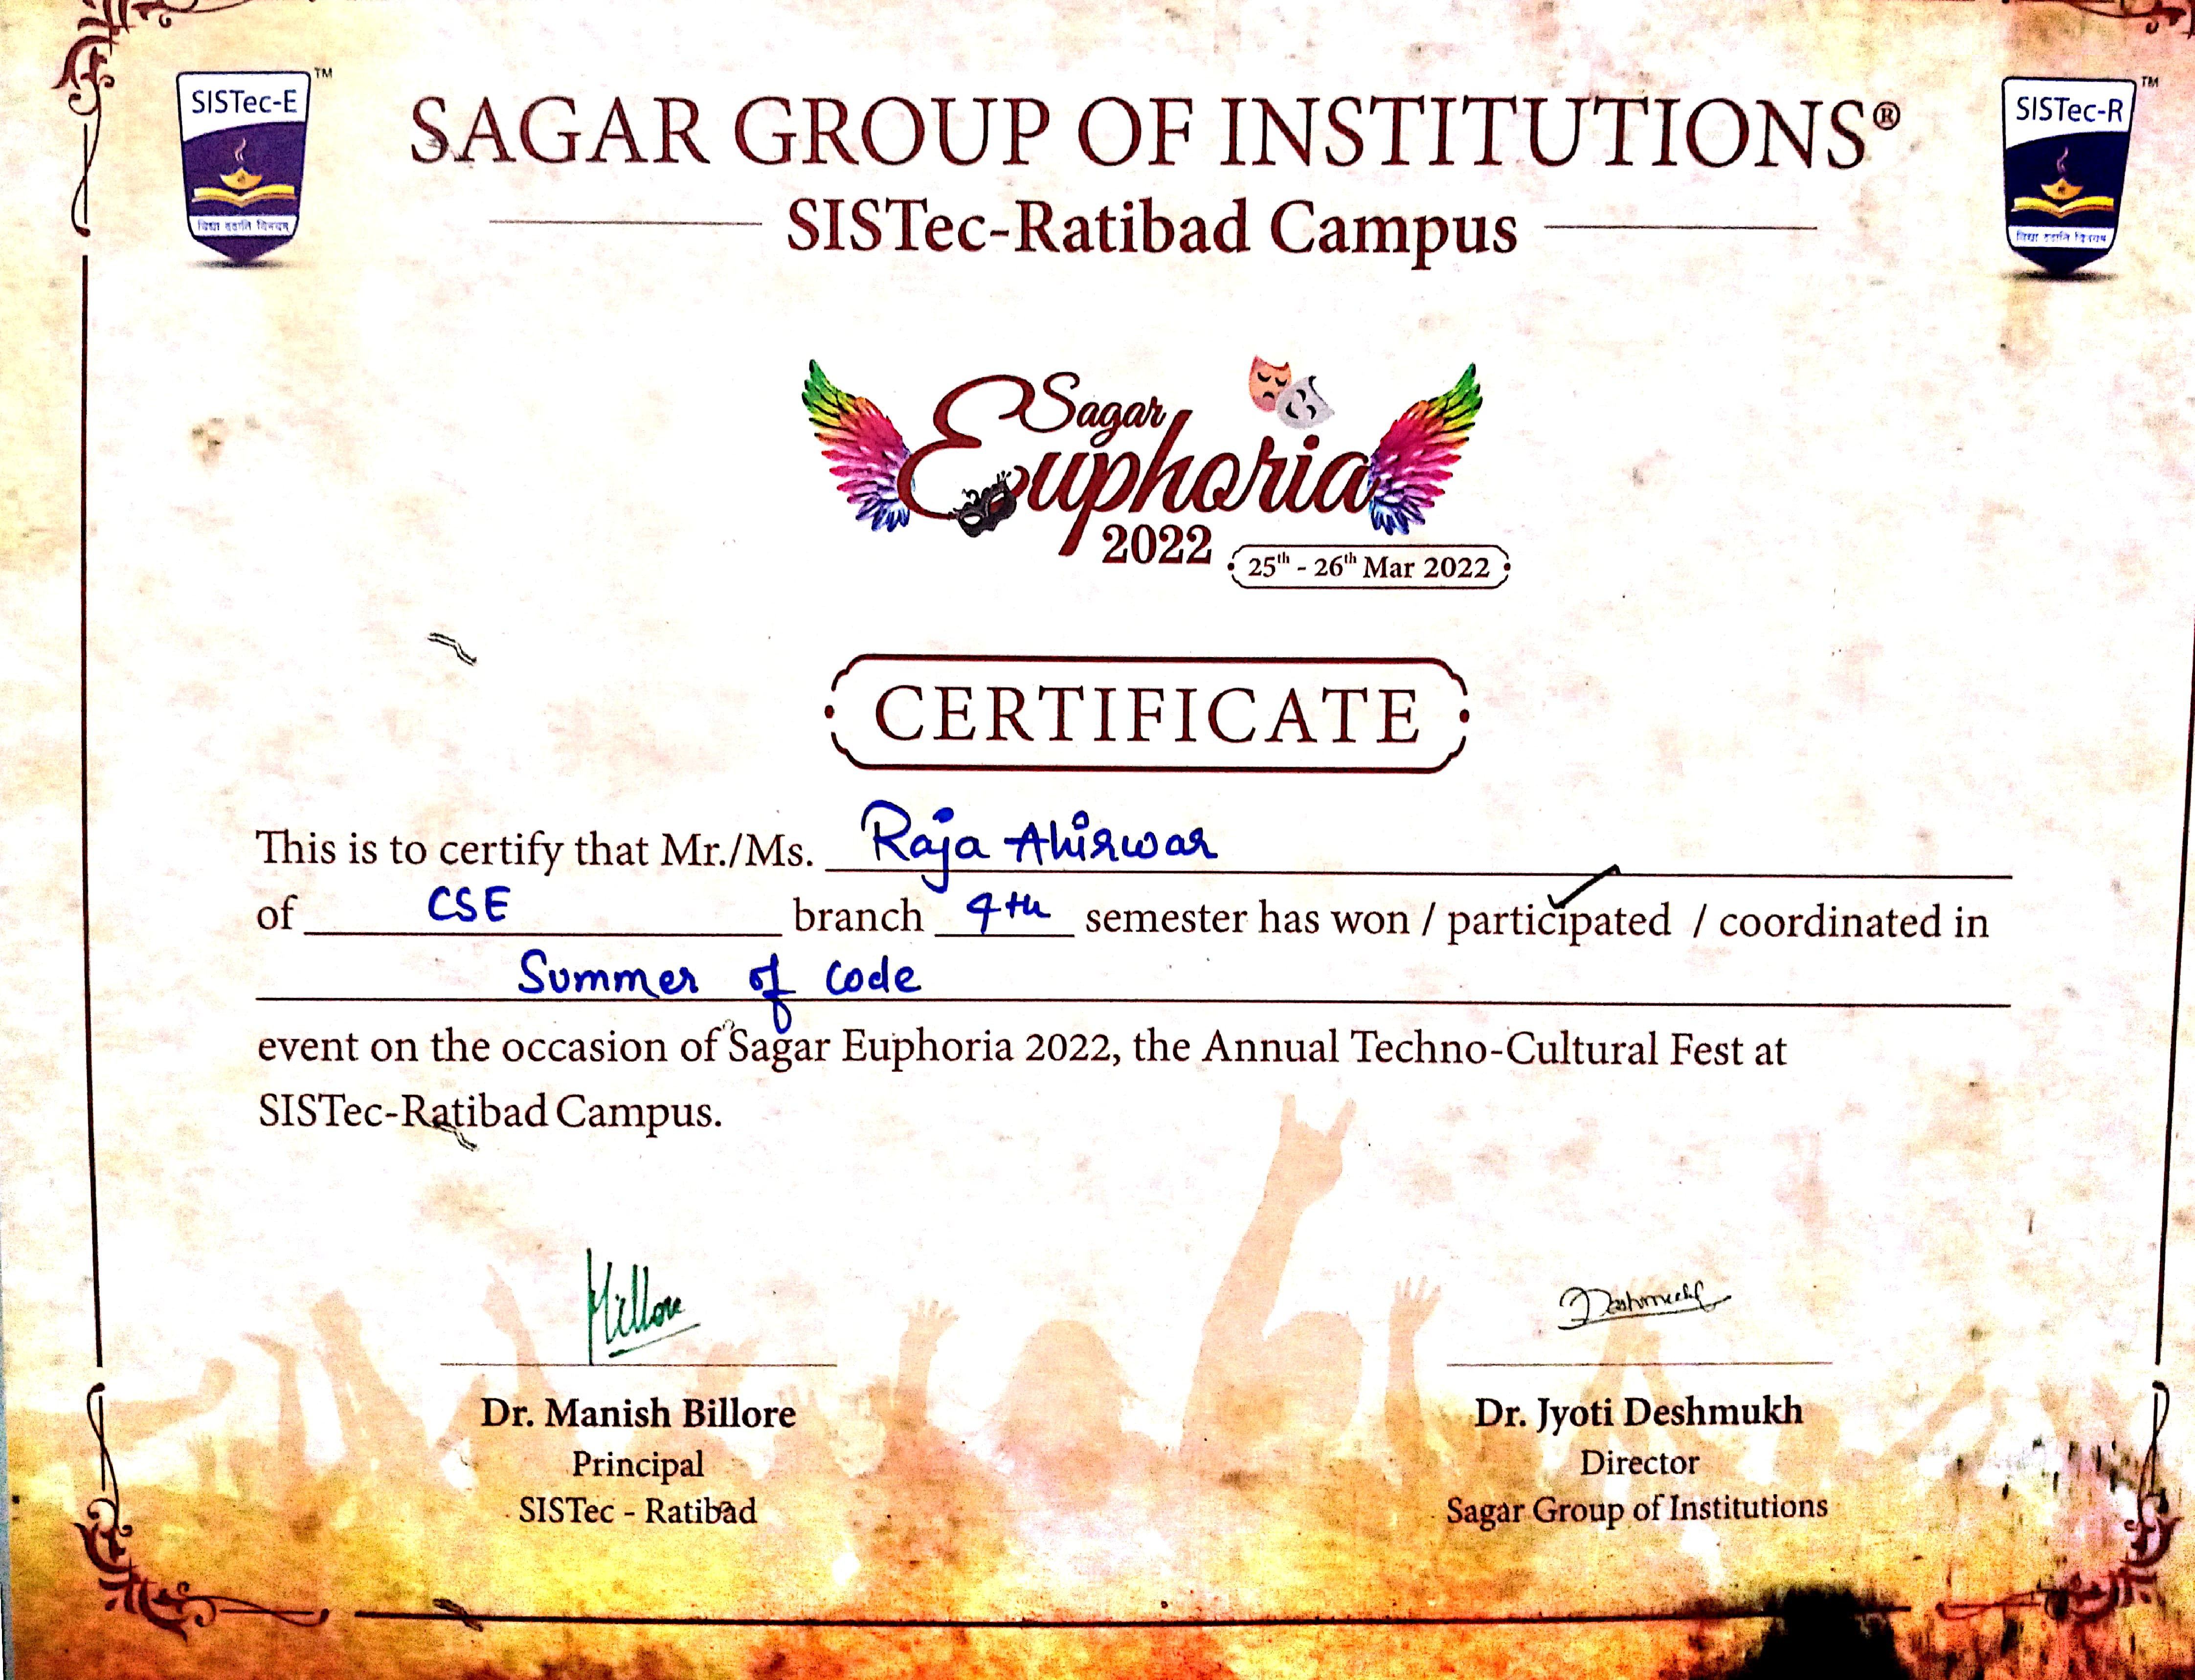 SISTec-E TM
विद्या ददाति विनयम
SAGAR GROUP OF INSTITUTIONS®
SISTec-R TM
विद्या ददाति विनयम
SISTec-Ratibad Campus
Sagar
Euphoria
2022
25th - 26th Mar 2022
CERTIFICATE
This is to certify that Mr./Ms. Raja Ahirwar
of CSE branch 4th semester has won / participated / coordinated in
Summer of Code
event on the occasion of Sagar Euphoria 2022, the Annual Techno-Cultural Fest at
SISTec-Ratibad Campus.
Billore
Deshmukh
Dr. Manish Billore
Principal
SISTec - Ratibad
Dr. Jyoti Deshmukh
Director
Sagar Group of Institutions